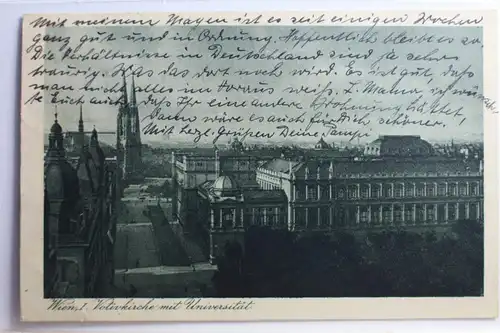 Mit meinem Magen ist es seit einigen Wochen
ganz gut und in Ordnung. Hoffentlich bleibt es so.
Die Verhältnisse in Deutschland sind ja sehr
traurig. Was das dort noch wird. Es ist gut, daß
man nicht alles im Voraus weiß. L. Mama, ich wünsch-
te Euch auch, daß Ihr eine andere Wohnung hättet,
Dann wäre es auch für Dich schöner.
Mit herzl. Grüßen Deine
Wien, I. Votivkirche mit Universität